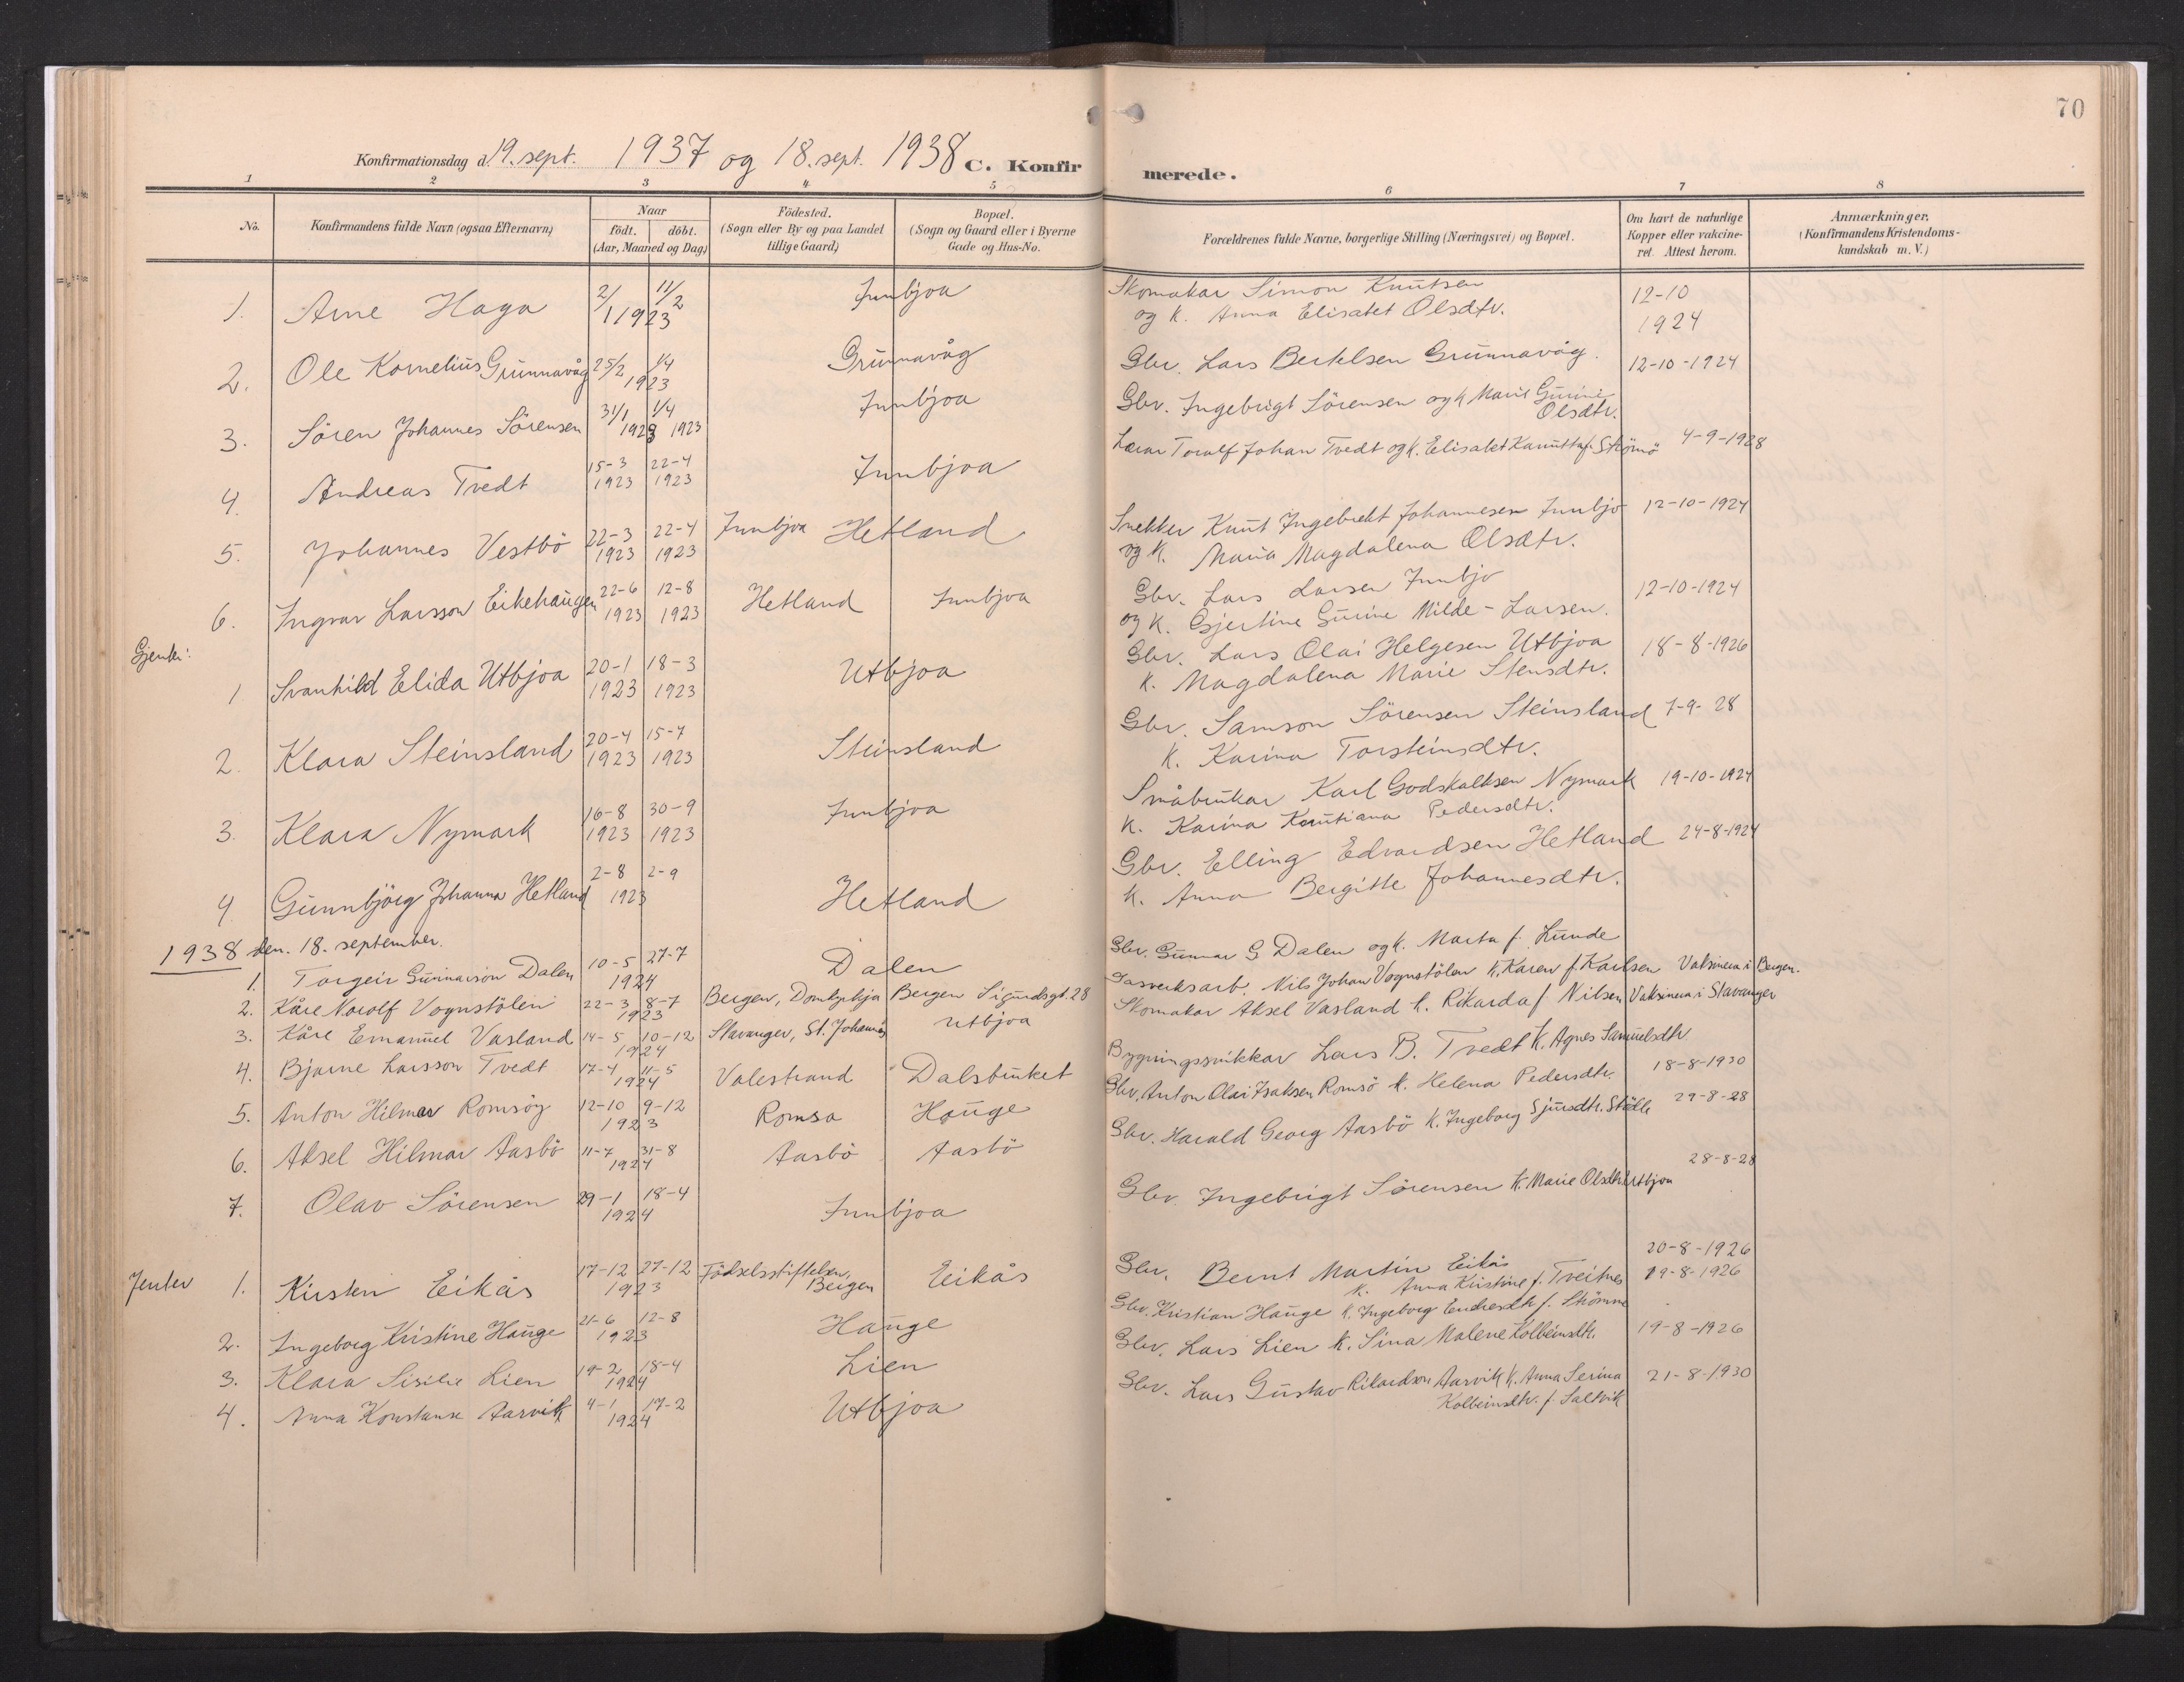 70
Konfirmationsdag d. 19. sept. 1937 og 18. sept. 1938 C. Konfirmerede.
1 2 3 4 5 6 7 8
No. Konfirmandens fulde Navn (ogsaa Efternavn) Naar födt. döbt. (Aar, Maaned og Dag) Födested. (Sogn eller By og paa Landet tillige Gaard) Bopæl. (Sogn og Gaard eller i Byerne Gade og Hus-No. Forældrenes fulde Navne, borgerlige Stilling (Næringsvei) og Bopæl. Om havt de naturlige Kopper eller vakcineret. Attest herom. Anmærkninger. (Konfirmandens Kristendomskundskab m. V.)
1. Arne Haga 2/1 11/2 1923 Innbjoa Skomakar Simon Knutsen og k. Anna Elisabet Olsdtr. 12-10 1924
2. Ole Kornelius Grunnavåg 25/2 1/4 1923 Grunnavåg Gbr. Lars Bertelsen Grunnavåg. 12-10-1924
3. Sören Johannes Sörensen 31/1 1923 1/4 1923 Innbjoa Gbr. Ingebrigt Sörensen og k Marie Gurine Olsdtr.
4. Andreas Tvedt 15-3 1923 22-4 1923 Innbjoa Lærar Toralf Johan Tvedt og k. Elisabet f. Strömö 4-9-1928
5. Johannes Vestbö 22-3 1923 22-4 1923 Innbjoa Hetland Snekker Knut Ingebrekt Johannesen Innbjo og k. Maria Magdalena Olsdtr. 12-10-1924
6. Ingvar Larsson Eikehaugen 22-6 1923 12-8 1923 Hetland Innbjoa Gbr. Lars Larsen Innbjo og k. Gjertine Gurine Milde-Larsen. 12-10-1924
Gjenter:
1 Svanhild Elida Utbjoa 20-1 1923 18-3 1923 Utbjoa Gbr. Lars Olai Helgesen Utbjoa k. Magdalena Marie Stensdtr. 18-8-1926
2. Klara Steinsland 20-4 1923 15-7 1923 Steinsland Gbr. Samson Sörensen Steinsland k. Karina Torsteinsdtr. 7-9-28
3. Klara Nymark 16-8 1923 30-9 1923 Innbjoa Småbrukar Karl Godskalksen Nymark k. Karina Pedersdtr. 19-10-1924
4 Gunnbjörg Johanna Hetland 2-8 2-9 1923 Hetland Gbr. Elling Edvardsen Hetland k. Anna Bergitte Johannesdtr. 24-8-1924
1938 den. 18. september.
1. Torgeir Gunnarson Dalen 10-5 27-7 1924 Dalen Gbr. Gunnar G Dalen og k. Marta f. Lunde
2. Kåre Norolf Vognstölen 22-3 8-7 1923 Bergen, Domkyrkja Bergen Sigurdsgt. 28 Gasverksarb. Nils Johan Vognstölen k. Karen f. Karlsen Vaksinera i Bergen.
3. Kåre Emanuel Vasland 14-5 10-12 1924 Stavanger, St. Johannes Utbjoa Skomakar Aksel Vasland k. Rikarda f Nilsen Vaksinera i Stavanger
4. Bjarne Larsson Tvedt 17-4 11-5 1924 Valestrand Dalsbruket Bygningssnikkar Lars B. Tvedt k. Agnes Samuelsdtr
5. Anton Hilmar Romsöy 12-10 9-12 1923 Romsa Hauge Gbr, Anton Olai Isaksen Romsö k. Helena Pedersdtr. 18-8-1930
6. Aksel Hilmar Aasbö 11-7 31-8 1924 Aasbö Aasbö Gbr. Harald Georg Aasbö k. Ingeborg Sjursdtr. 29-8-28
7. Olav Sörensen 29-1 18-4 1924 Innbjoa Gbr Ingebrigt Sörensen k. Marie Olsdtr Utbjoa 28-8-28
Jenter 1. Kirsten Eikås 17-12 27-12 1923 Födselsstiftelsen, Bergen Eikås Gbr. Bernt Martin Eikås k. Anna Kristine f. Treitnes 20-8-1926
2. Ingeborg Kristine Hauge 21-6 12-8 1923 Hauge Gbr. Kristian Hauge k. Ingeborg Endresdtr f. Strömme 19-8-1926
3. Klara Sisilie Lien 19-2 18-4 1924 Lien Gbr. Lars Lien k. Sina Malene Kolbeinsdtr. 19-8-1926
4. Anna Konstanse Aarvik 4-1 17-2 1924 Utbjoa Gbr. Lars Gustav Rikardson Aarvik k. Anna Serina Kolbeinsdtr. f. Saltvik 21-8-1930